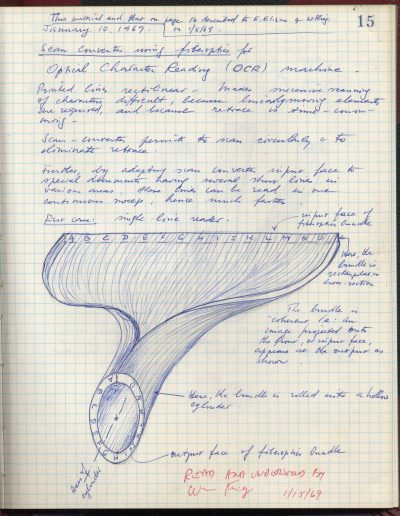 This material and that on page 16 described to E.
on 1/8/69.
15
January 10, 1969.
Scan Converter using fiberoptics for
Optical Character Reading (OCR) machine.
Printed lines rectilinear - Makes successive scanning
of characters difficult, because linearly moving elements
are required, and because retrace is time-consu-
ming -
Scan-converter permits to scan circularly & to
eliminate retrace
Further, by adapting scan converter input face to
special documents having several short lines in
various areas, these lines can be read in one
continuous sweep, hence much faster.
First case: single-line reader.
input face of
fiberoptics bundle
A B C D E F G H I J K L M N O
Here, the
bundle is
rectangular in
cross section
The bundle is
"coherent", i.e.: an
image projected onto
the front, or input face,
appears at the output as
shown
Here, the bundle is rolled into a hollow
cylinder
output face of fiberoptics bundle
Axis of
cylinder
READ AND UNDERSTOOD BY
1/15/69